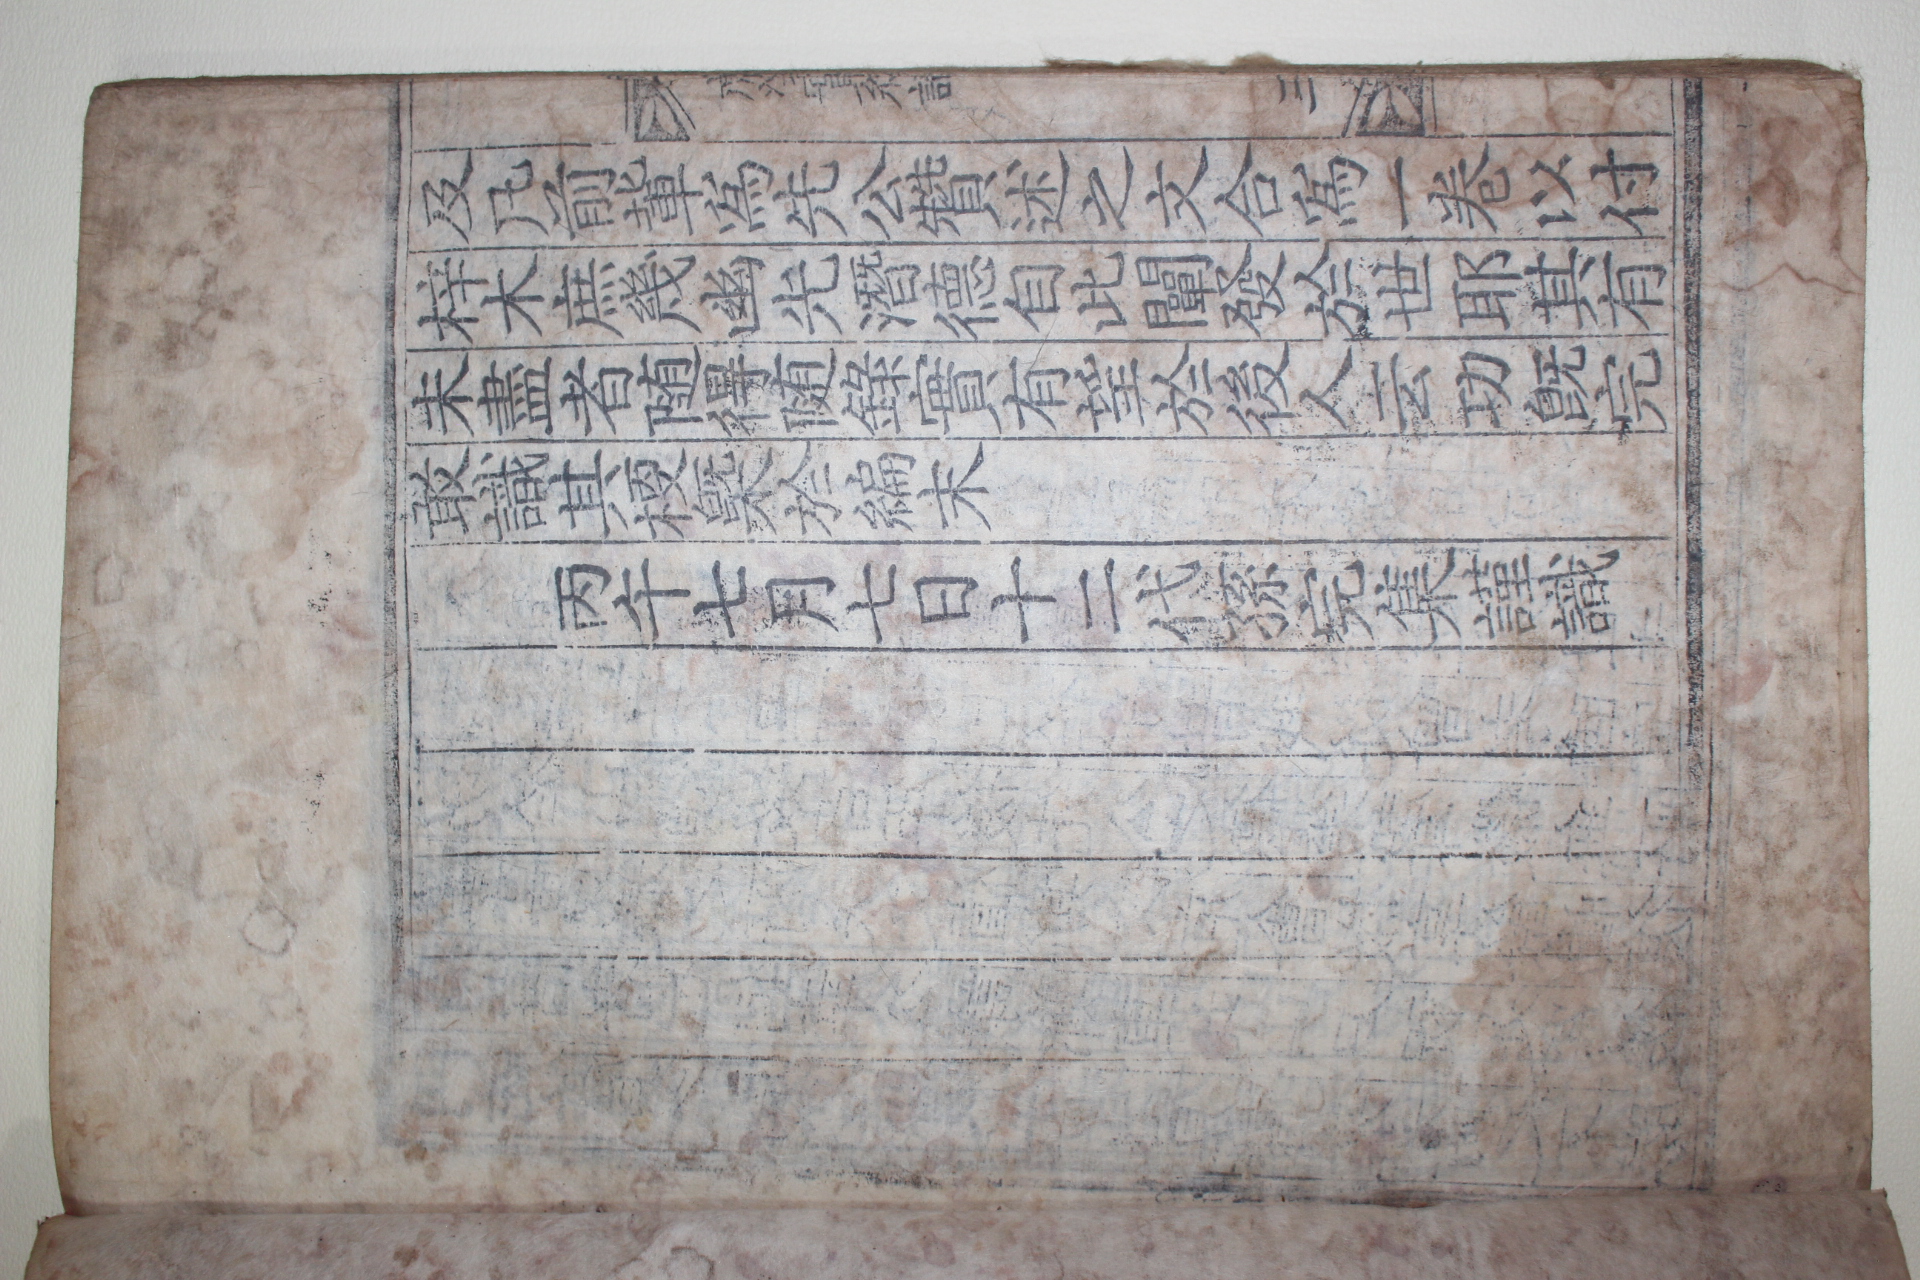 及凡前軰爲先公贊述之文合爲一卷以付
梓木庶幾幽光潛德自此闡發於世耶其有
未盡者随得随錄實有望於後人云功旣完
敢識其梗槩於編末
丙午七月七日十二代孫完集謹識
三